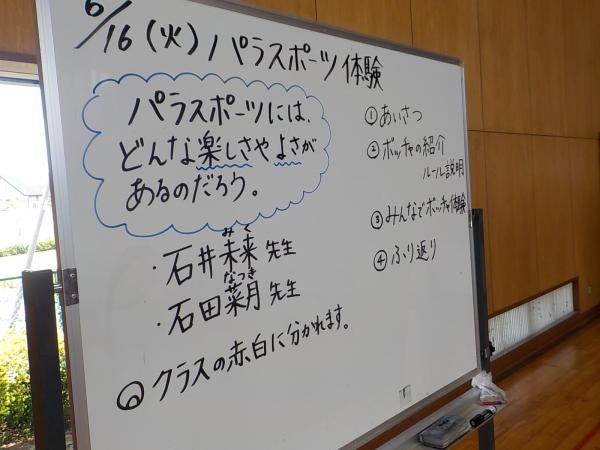 6/16(火)パラスポーツ体験
パラスポーツには、
どんな楽しさやよさが
あるのだろう。
みく
・石井未来先生
なつき
・石田菜月先生
◎クラスの赤白に分かれます。
①あいさつ
②ボッチャの紹介
ルール説明
③みんなでボッチャ体験
④ふり返り